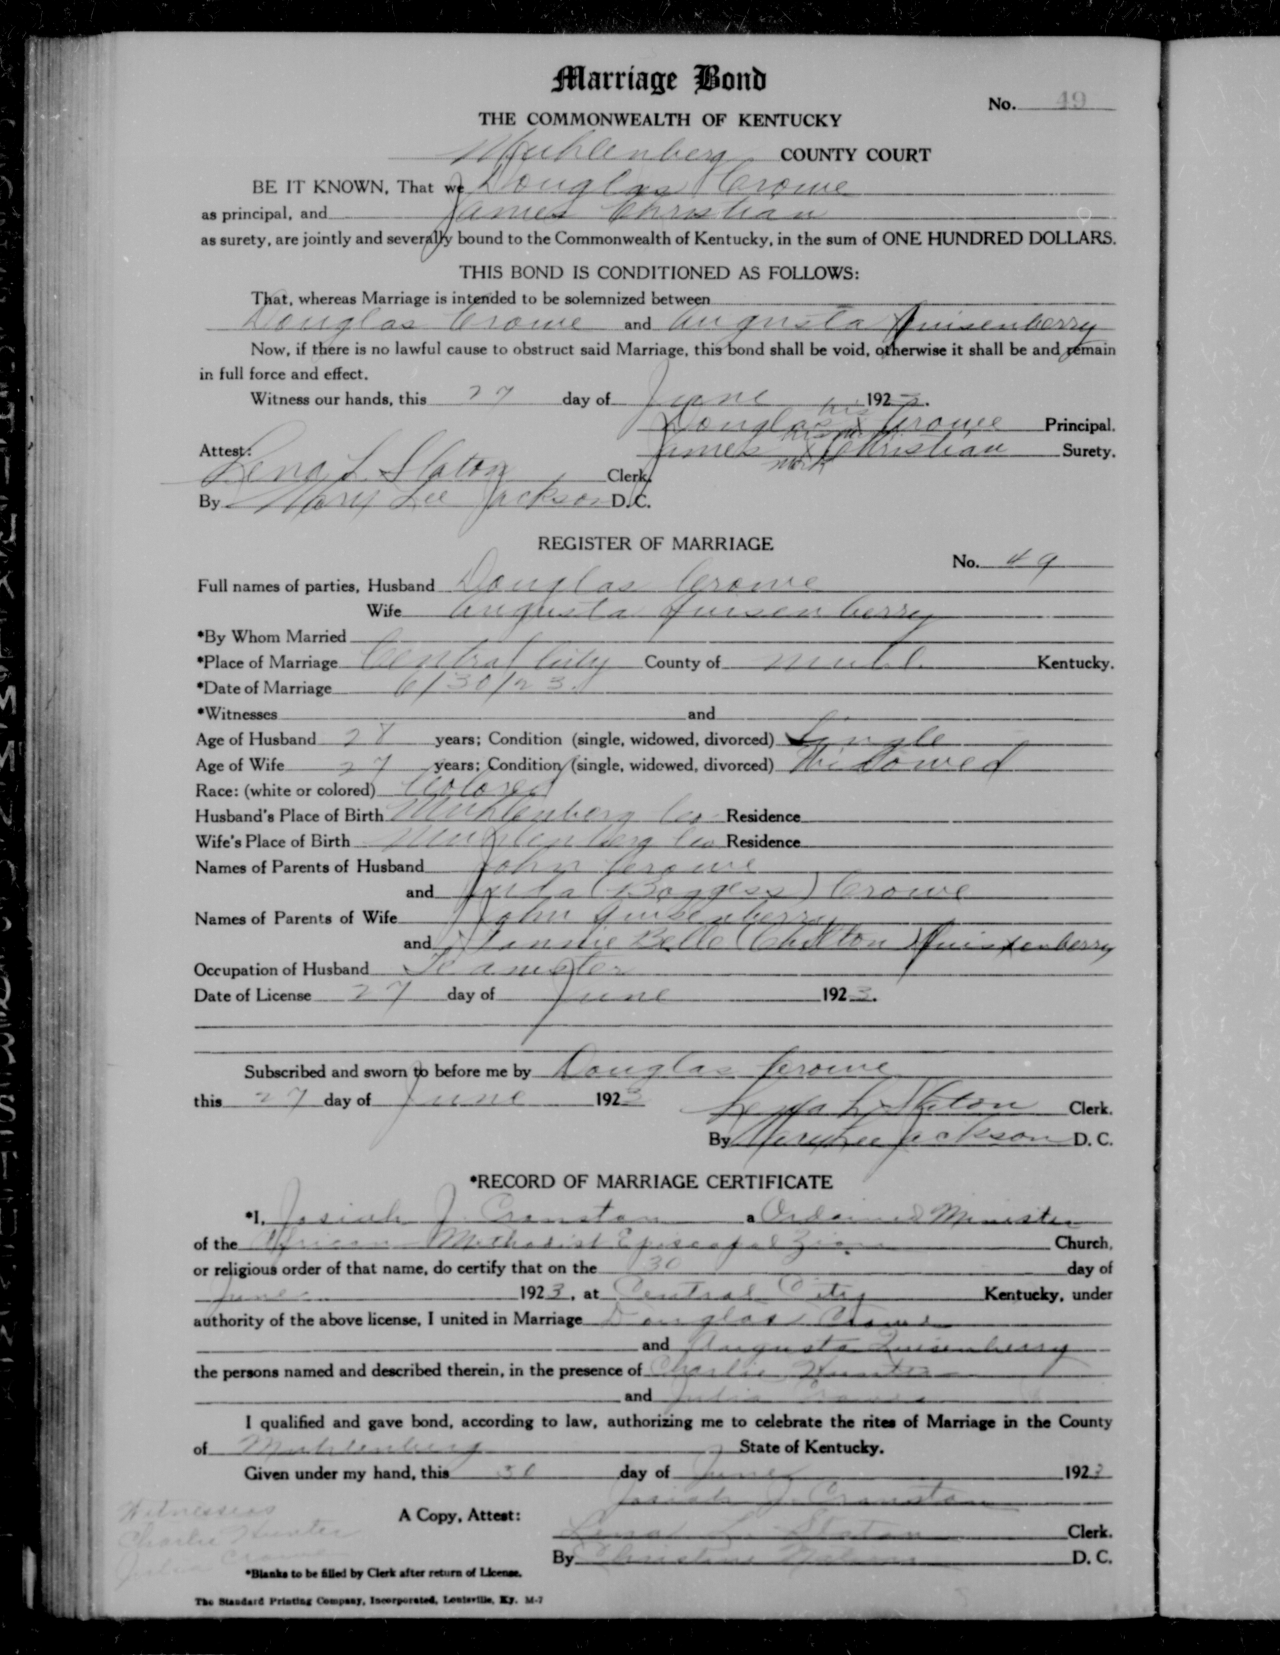 Marriage Bond
No. 49
THE COMMONWEALTH OF KENTUCKY
Muhlenberg COUNTY COURT
BE IT KNOWN, That we Douglas Crowe
as principal, and James Christian
as surety, are jointly and severally bound to the Commonwealth of Kentucky, in the sum of ONE HUNDRED DOLLARS.
THIS BOND IS CONDITIONED AS FOLLOWS:
That, whereas Marriage is intended to be solemnized between
Douglas Crowe and Augusta Quisenberry
Now, if there is no lawful cause to obstruct said Marriage, this bond shall be void, otherwise it shall be and remain
in full force and effect.
Witness our hands, this 27 day of June 1923.
Douglas his x mark Crowe Principal.
Attest: James his x mark Christian Surety.
Lena L. Slaton Clerk.
By Mary Lee Jackson D.C.
REGISTER OF MARRIAGE
No. 49
Full names of parties, Husband Douglas Crowe
Wife Augusta Quisenberry
*By Whom Married
*Place of Marriage Central City County of Muhl. Kentucky.
*Date of Marriage 6/30/23.
*Witnesses and
Age of Husband 28 years; Condition (single, widowed, divorced) Single
Age of Wife 27 years; Condition (single, widowed, divorced) Widowed
Race: (white or colored) Colored
Husband's Place of Birth Muhlenberg Co. Residence
Wife's Place of Birth Muhlenberg Co. Residence
Names of Parents of Husband John Crowe
and Juda (Boggess) Crowe
Names of Parents of Wife John Quisenberry
and Belle (Chelton) Quisenberry
Occupation of Husband Teamster
Date of License 27 day of June 1923.
Subscribed and sworn to before me by Douglas Crowe
this 27 day of June 1923
Lena L. Slaton Clerk.
By Mary Lee Jackson D. C.
*RECORD OF MARRIAGE CERTIFICATE
*I, Josiah J. Cranston a Ordained Minister
of the African Methodist Episcopal Zion Church,
or religious order of that name, do certify that on the 30 day of
June 1923, at Central City Kentucky, under
authority of the above license, I united in Marriage Douglas Crowe
and Augusta Quisenberry
the persons named and described therein, in the presence of Charlie Hunter
and Julia Crowe
I qualified and gave bond, according to law, authorizing me to celebrate the rites of Marriage in the County
of Muhlenberg State of Kentucky.
Given under my hand, this 30 day of June 1923
Josiah J. Cranston
Witnesses
A Copy, Attest:
Charlie Hunter
Lena L. Slaton Clerk.
Julia Crowe
By Christine D. C.
*Blanks to be filled by Clerk after return of License.
The Standard Printing Company, Incorporated, Louisville, Ky. M-7